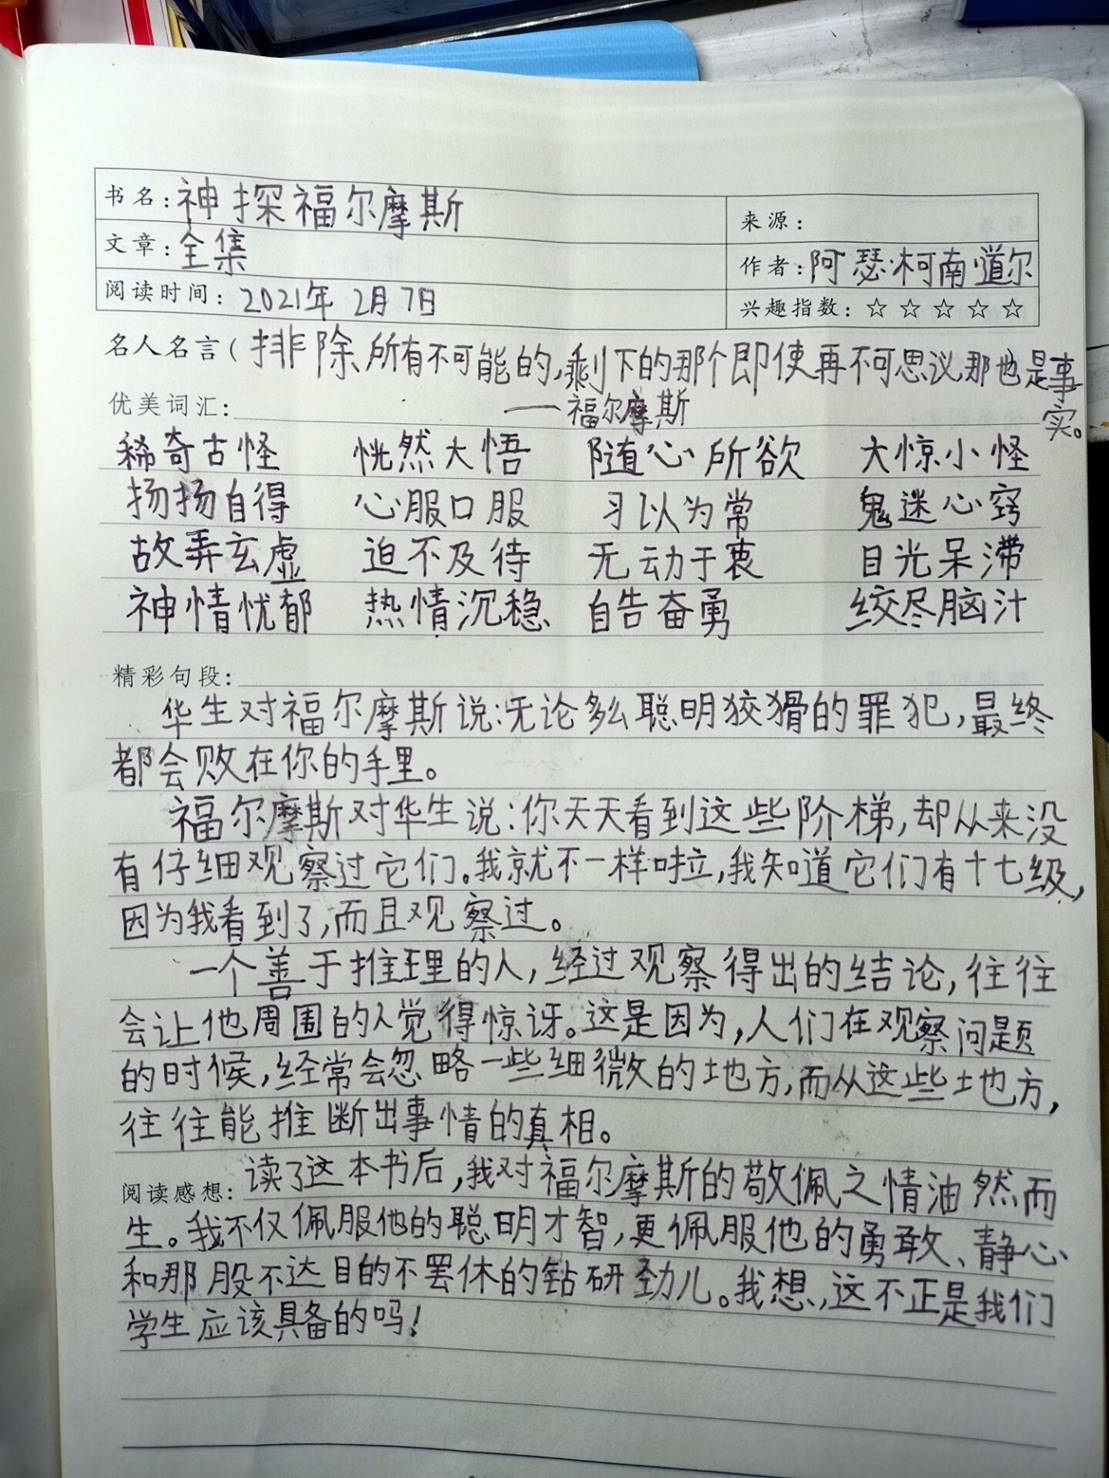 书名:神探福尔摩斯
来源:
文章:全集
作者:阿瑟·柯南道尔
阅读时间:2021年2月7日
兴趣指数:☆☆☆☆☆
名人名言(排除所有不可能的,剩下的那个即使再不可思议,那也是事
实。
——福尔摩斯
优美词汇:
稀奇古怪 恍然大悟 随心所欲 大惊小怪
扬扬自得 心服口服 习以为常 鬼迷心窍
故弄玄虚 迫不及待 无动于衷 目光呆滞
神情忧郁 热情沉稳 自告奋勇 绞尽脑汁
精彩句段:
华生对福尔摩斯说:无论多么聪明狡猾的罪犯,最终
都会败在你的手里。
福尔摩斯对华生说:你天天看到这些阶梯,却从来没
有仔细观察过它们。我就不一样啦,我知道它们有十七级,
因为我看到了,而且观察过。
一个善于推理的人,经过观察得出的结论,往往
会让他周围的人觉得惊讶。这是因为,人们在观察问题
的时候,经常会忽略一些细微的地方,而从这些地方,
往往能推断出事情的真相。
阅读感想:读了这本书后,我对福尔摩斯的敬佩之情油然而
生。我不仅佩服他的聪明才智,更佩服他的勇敢、静心
和那股不达目的不罢休的钻研劲儿。我想,这不正是我们
学生应该具备的吗!